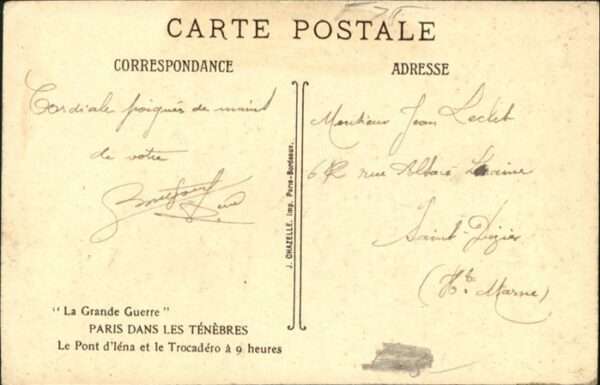 CARTE POSTALE
CORRESPONDANCE
Cordiale poignés de maint
de votre
J. CHAZELLE, Imp. Paris-Bordeaux.
ADRESSE
Monsieur Jean
rue Alsace Lorraine
Saint Dizier
(Hte Marne)
"La Grande Guerre"
PARIS DANS LES TÉNÈBRES
Le Pont d'Iéna et le Trocadéro à 9 heures